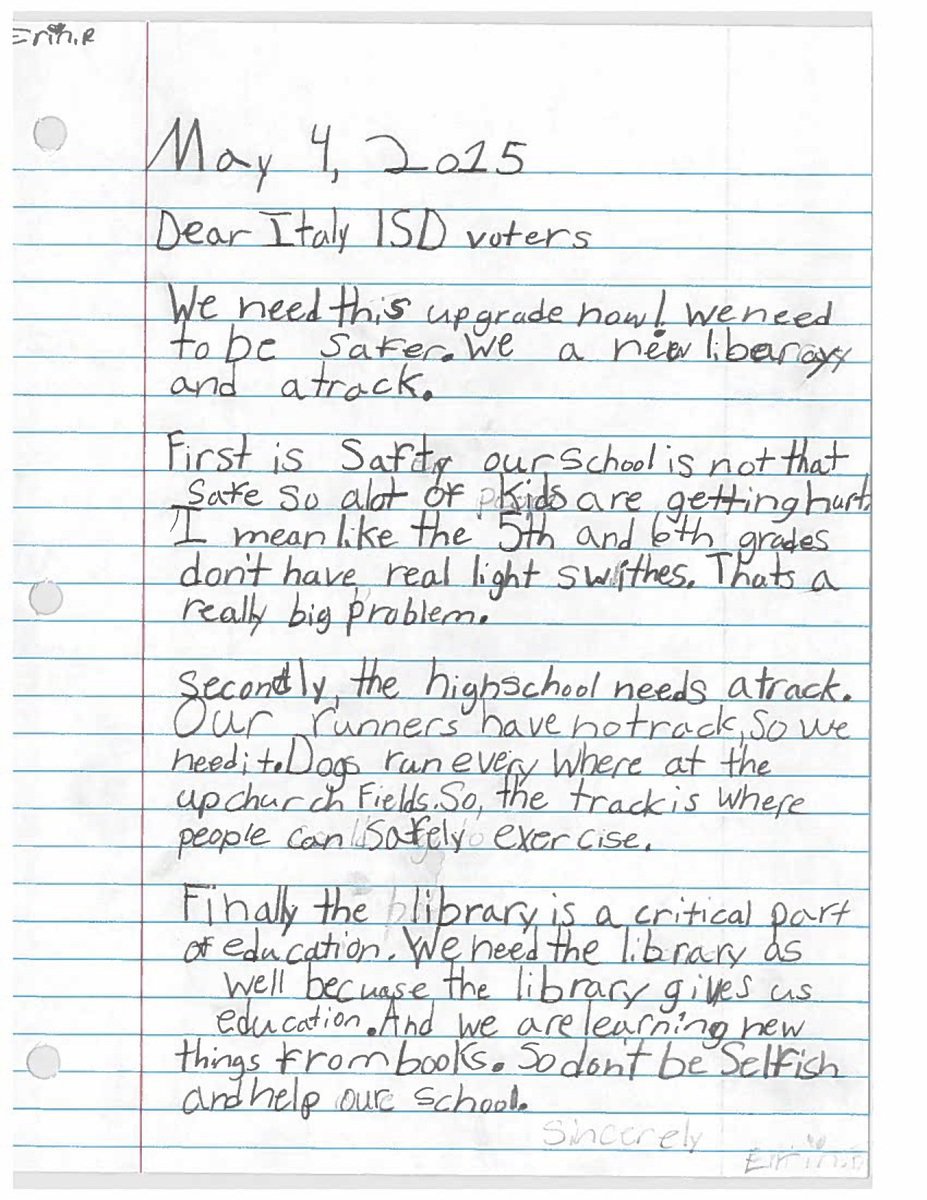 Erin.R
May 4, 2015
Dear Italy ISD voters
We need this upgrade now! we need
to be safer. We a new liberary
and a track.
First is Safty our school is not that
safe so alot of kids are getting hurt.
I mean like the 5th and 6th grades
don't have real light swithes. Thats a
really big problem.
Secondly, the highschool needs a track.
Our runners have no track, So we
need it. Dogs run every where at the
upchurch fields. So, the track is where
people can safely exercise.
Finally the library is a critical part
of education. We need the library as
well becuase the library gives us
education. And we are learning new
things from books. So don't be selfish
and help our school.
Sincerely
Erin.R